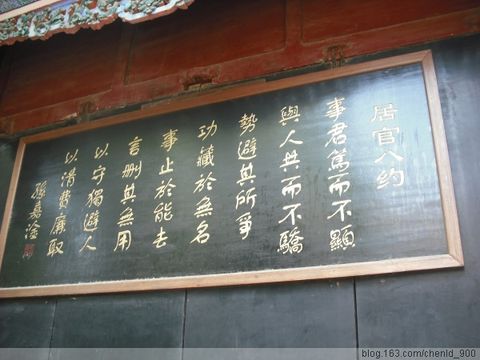 居官八约
事君篤而不顯
與人共而不驕
勢避其所爭
功藏於無名
事止於能去
言删其無用
以守獨避人
以清費廉取
孫嘉淦
blog.163.com/chenld_900